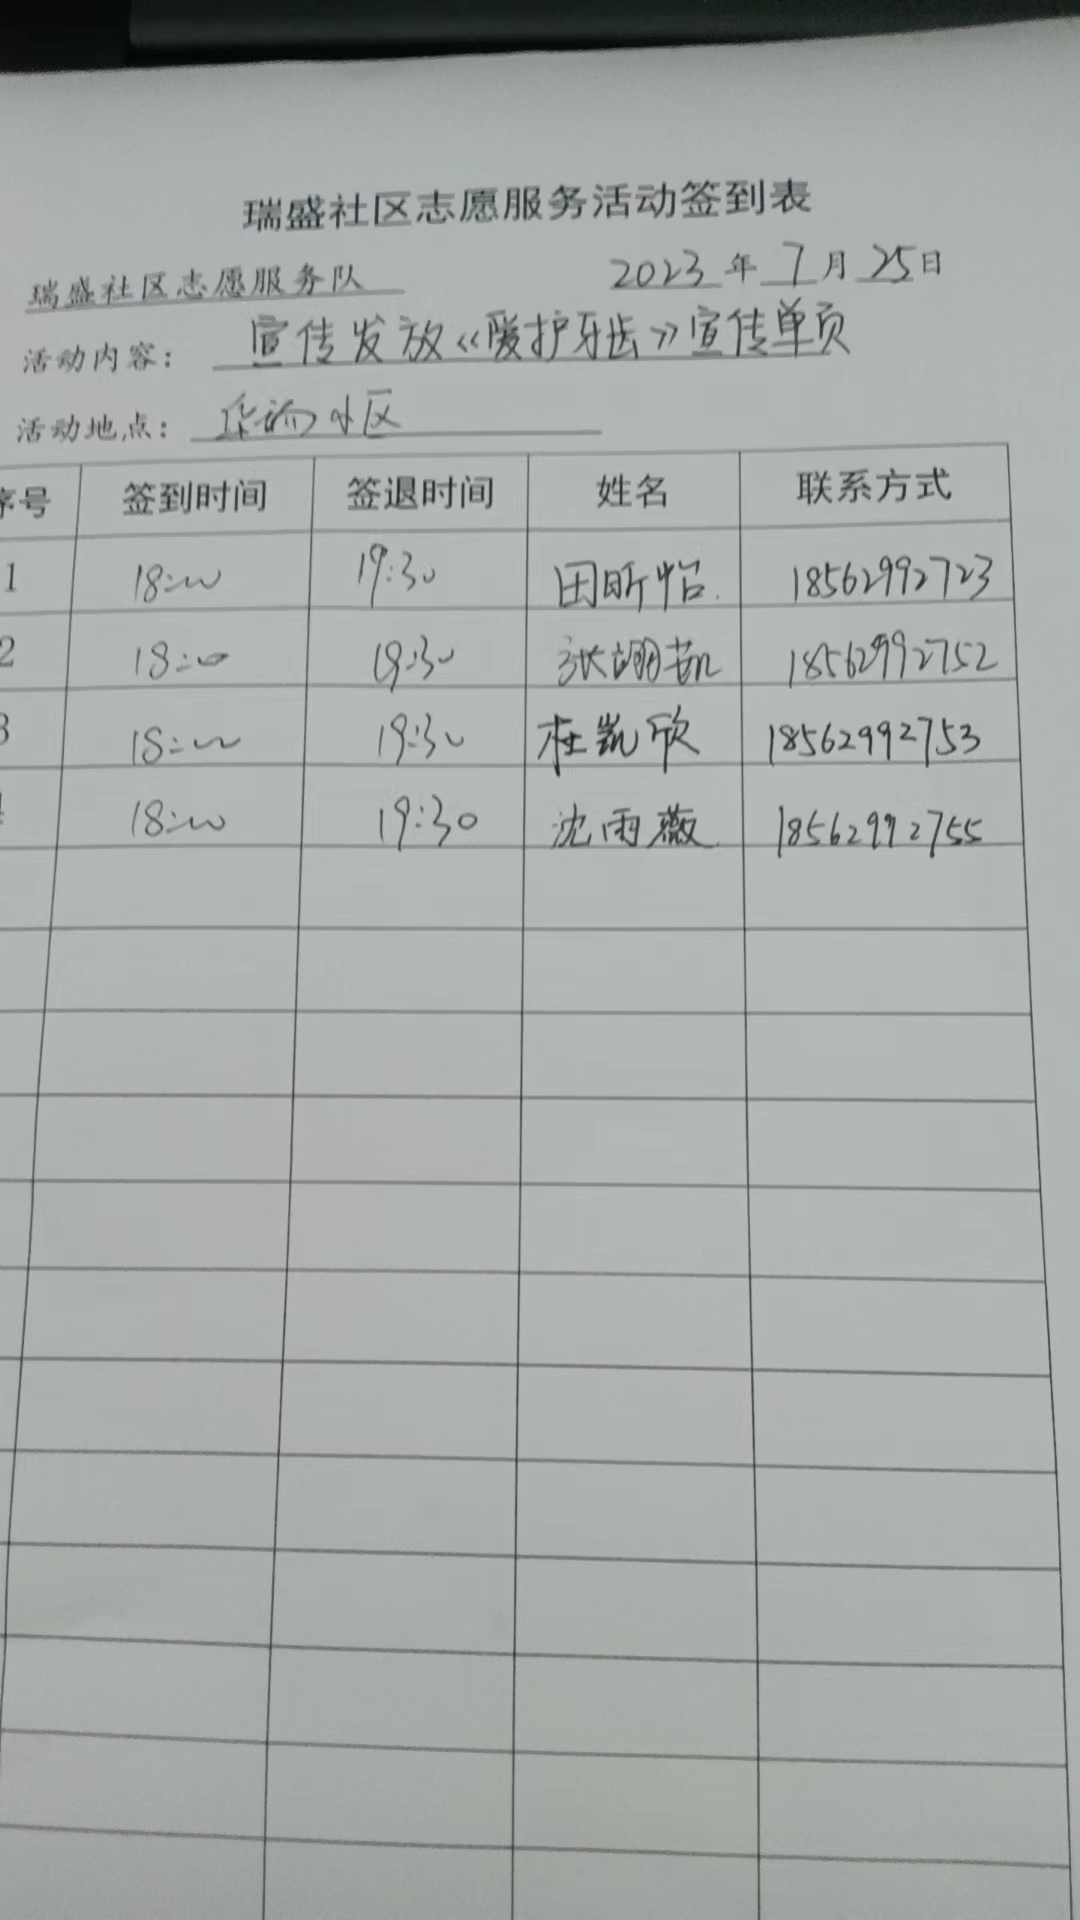 瑞盛社区志愿服务活动签到表
瑞盛社区志愿服务队 2023年7月25日
活动内容：宣传发放《爱护牙齿》宣传单页
活动地点：小区
序号 签到时间 签退时间 姓名 联系方式
1 18:00 19:30 田昕怡 18562992723
2 18:00 19:30 张翊 18562992752
3 18:00 19:30 杜凯欣 18562992753
4 18:00 19:30 沈雨薇 18562992755